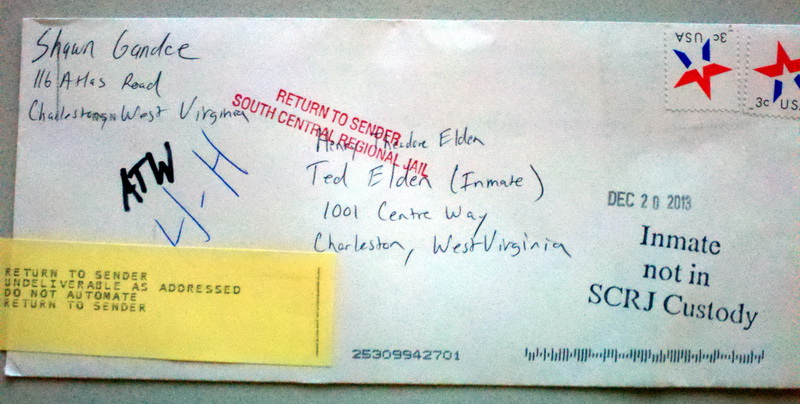 Shawn Gandee
116 Atlas Road
Charleston, West Virginia
3c USA
3c USA
RETURN TO SENDER
SOUTH CENTRAL REGIONAL JAIL
Henry Theodore Elden
Ted Elden (Inmate)
1001 Centre Way
Charleston, West Virginia
ATW
DEC 20 2013
Inmate
not in
SCRJ Custody
RETURN TO SENDER
UNDELIVERABLE AS ADDRESSED
DO NOT AUTOMATE
RETURN TO SENDER
25309942701